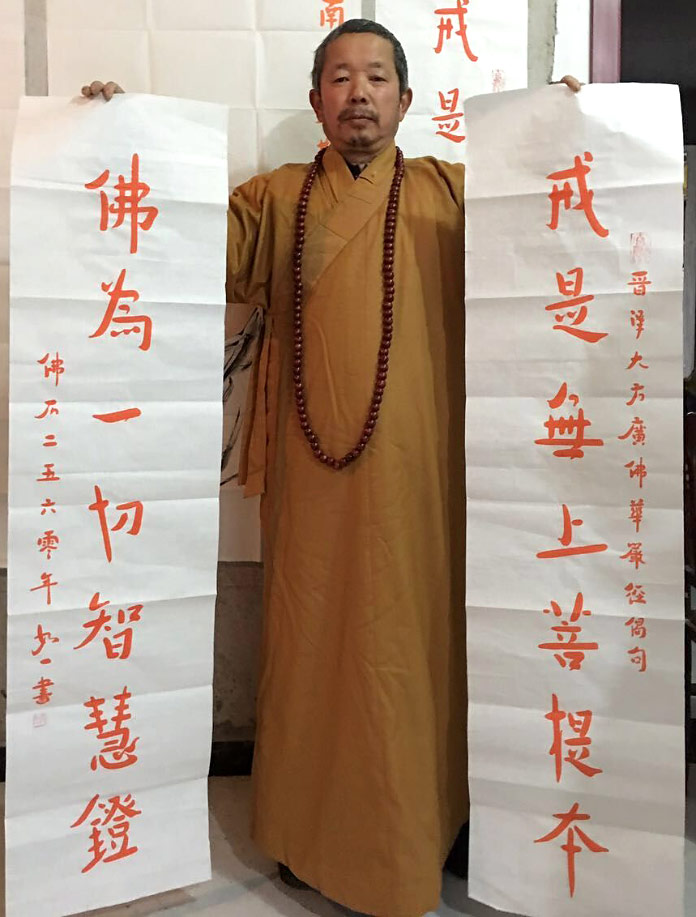 晉譯大方廣佛華嚴經偈句
戒是無上菩提本
佛為一切智慧鐙
佛历二五六零年 如一書
戒是
南